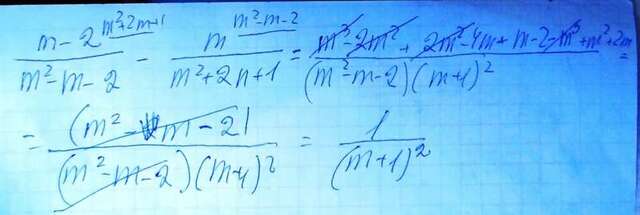 (m - 2)^{m²+2m+1} / (m² - m - 2) - m^{m²-m-2} / (m² + 2n + 1) = (m³ - 2m² + 2m² - 4m + m - 2 - m³ + m² + 2m) / ((m² - m - 2)(m+1)²) =
= (m² - m - 2) / ((m² - m - 2)(m+1)²) = 1 / (m+1)²